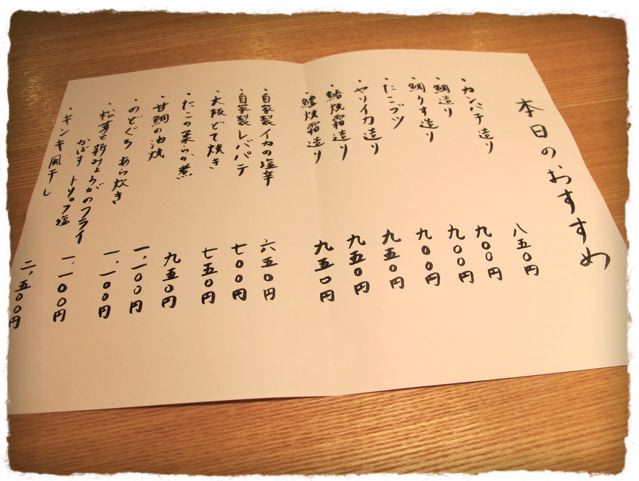 本日のおすすめ
・カンパチ造り 八五〇円
・鯛造り 九〇〇円
・鯛うす造り 九〇〇円
・たこブツ 九〇〇円
・ヤリイカ造り 九五〇円
・鰆焼霜造り 九五〇円
・鱧焼霜造り 九五〇円
・自家製イカの塩辛 六五〇円
・自家製レバパテ 七〇〇円
・大阪どて焼き 七五〇円
・たこの柔らか煮 九五〇円
・甘鯛の油焼 一,一〇〇円
・のどぐろ あら炊き 一,一〇〇円
・松茸と新みょうがのフライ 一,一〇〇円
かぼす トリュフ塩
・キンキ風干し 二,五〇〇円